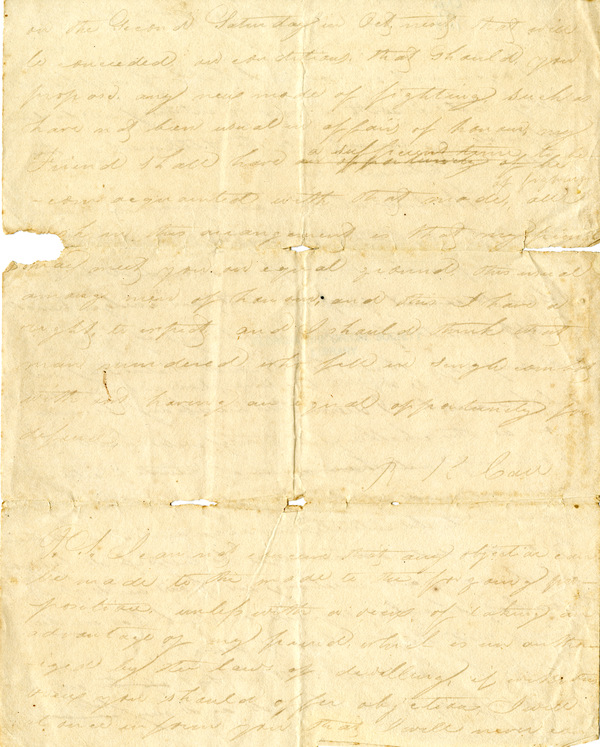 on the Second Saturday in Oct next that will
be conceded on condition that should you
propose any new mode of fighting such as
have not been usual in affairs of honour my
Friend shall have a sufficient time to be
an opportunity of be
of
-come acquainted with that mode, all
in this arrangement is that my friend
meet you on equal ground this usual
among men of honour, and this I have a
right to expect and I should think that
man murdered who fell in single combat
with out having an equal opportunity for
defence
R K Call
P. S. I can not conceive that any objection can
be made to the made to the foregoing pro-
position unless with a view of taking an
advantage of my friend which is un autho-
rised by the laws of duelling, if with this
view you should offer objections I will
at once inform you that I will never